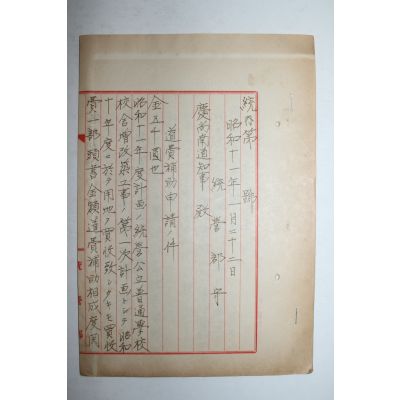 統内第　號
昭和十一年一月二十二日
統營郡守
慶尚南道知事 殿
道費補助申請ノ件
金五千圓也
昭和十一年度計画ノ統營公立普通學校
校舎增改築工事ノ第一次計画トシテ昭和
十年度ニ於テ用地ノ買收致シタキモ買收
費一部頭書金額道費補助相成度